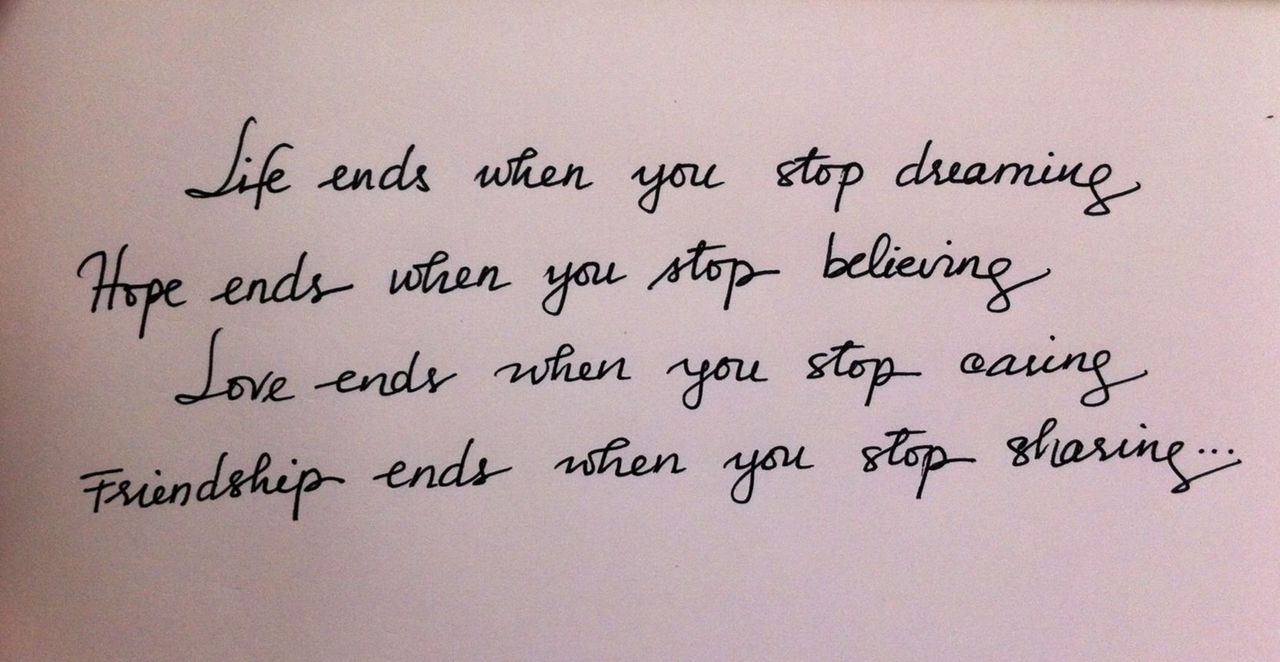 Life ends when you stop dreaming
Hope ends when you stop believing
Love ends when you stop caring
Friendship ends when you stop sharing...